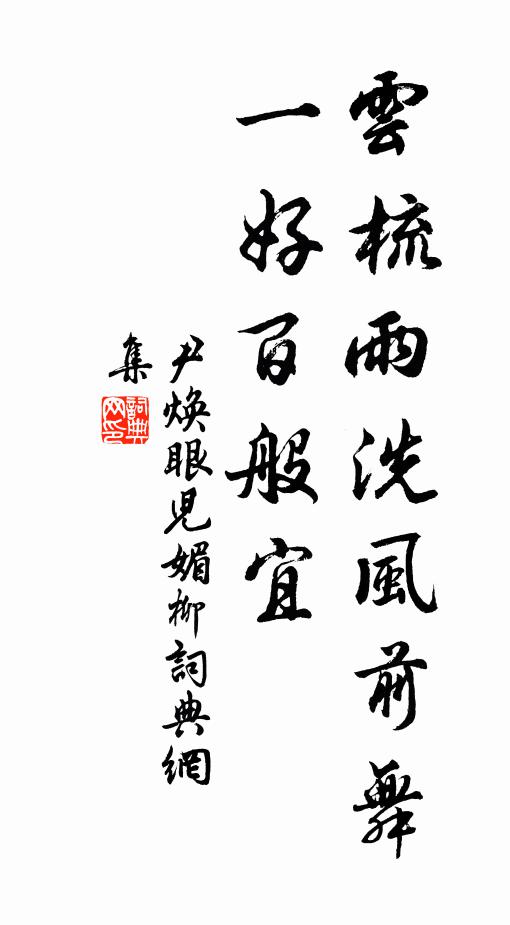 雲梳雨洗風前舞
一好百般宜
尹煥眼兒媚柳詞典網
集
詞典
网印